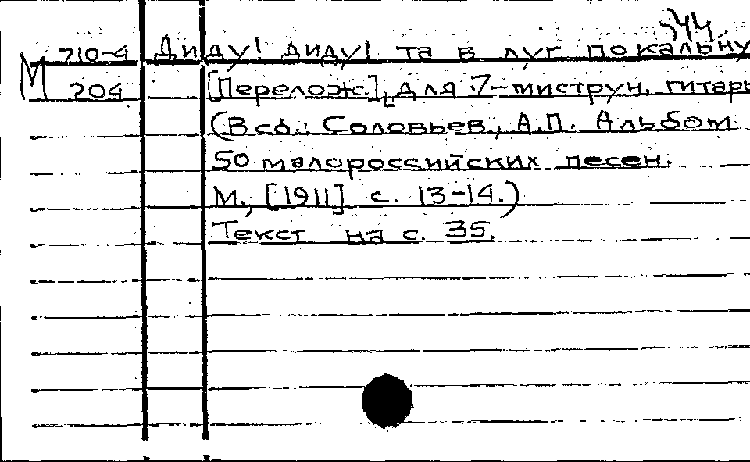 544
М 710-4 Диду! диду! та в луг по кальну
204 [Перелож.] для 7-миструн. гитары
(В сб.: Соловьев, А.П. Альбом
50 малороссийских песен.
М., [1911] с. 13-14.)
Текст на с. 35.